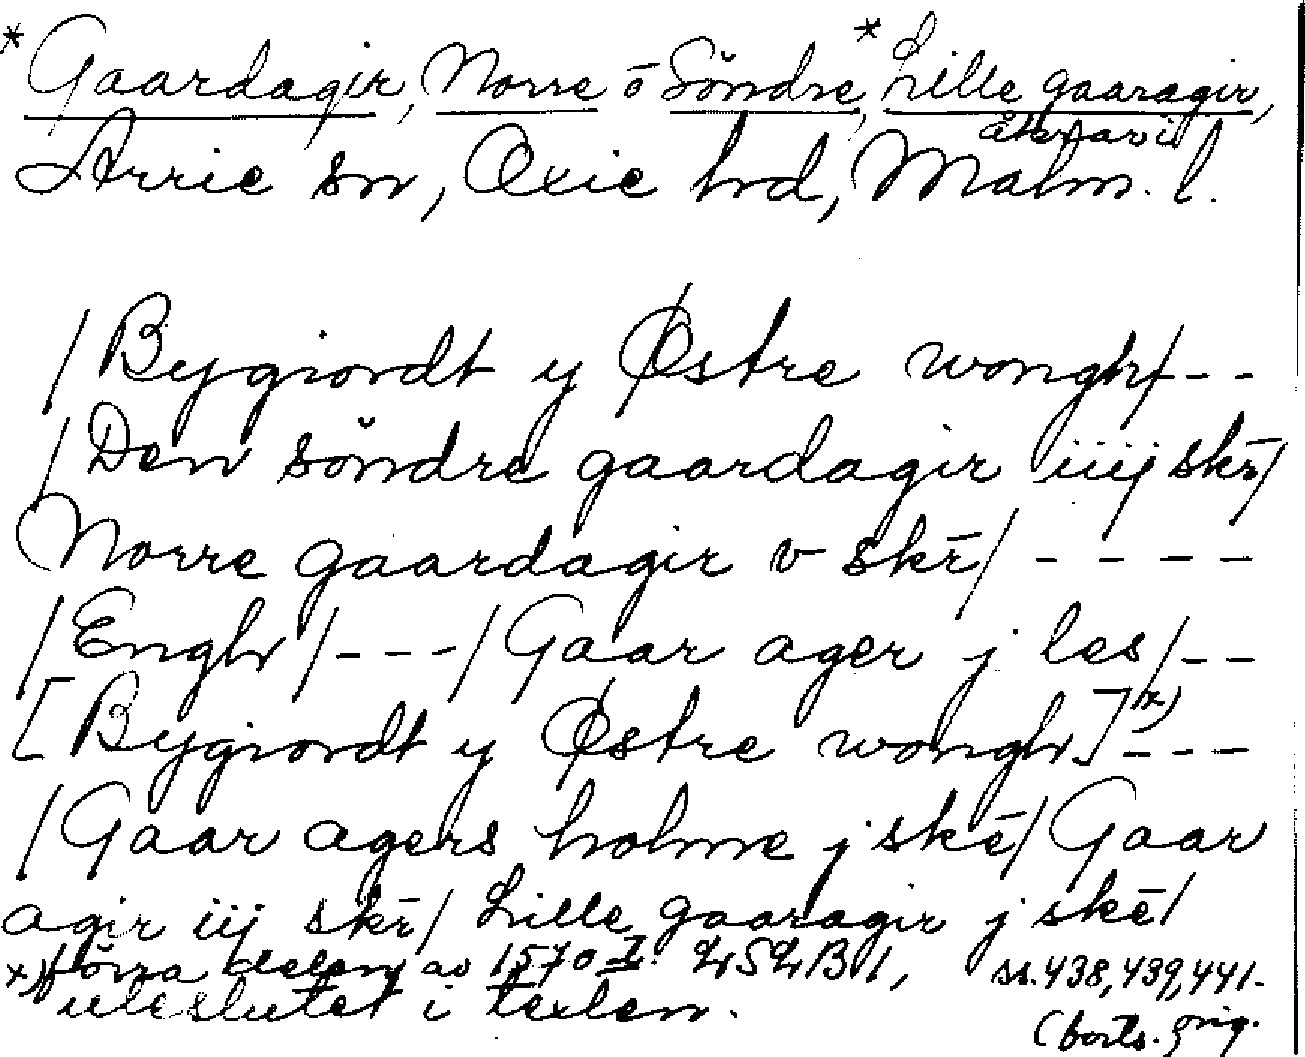 * Gaardagir, Norre o Söndre, * Lille gaaragir,
åkrar i
Arrie sn, Oxie hd, Malm. l.
/Bygiordt y Østre wongh/---
/Den söndre gaardagir iiij skr̄/
Norre gaardagir v skr̄/ - - - -
/Engh/---/Gaar ager j les/--
[Bygiordt y Østre wongh]x) ---
/Gaar agers holme j skē/ Gaar
agir iij skr̄/ Lille gaaragir j skē/
x) förra delen av 1570 ss. 438, 439, 441.
uteslutet i texten.
(forts. orig.